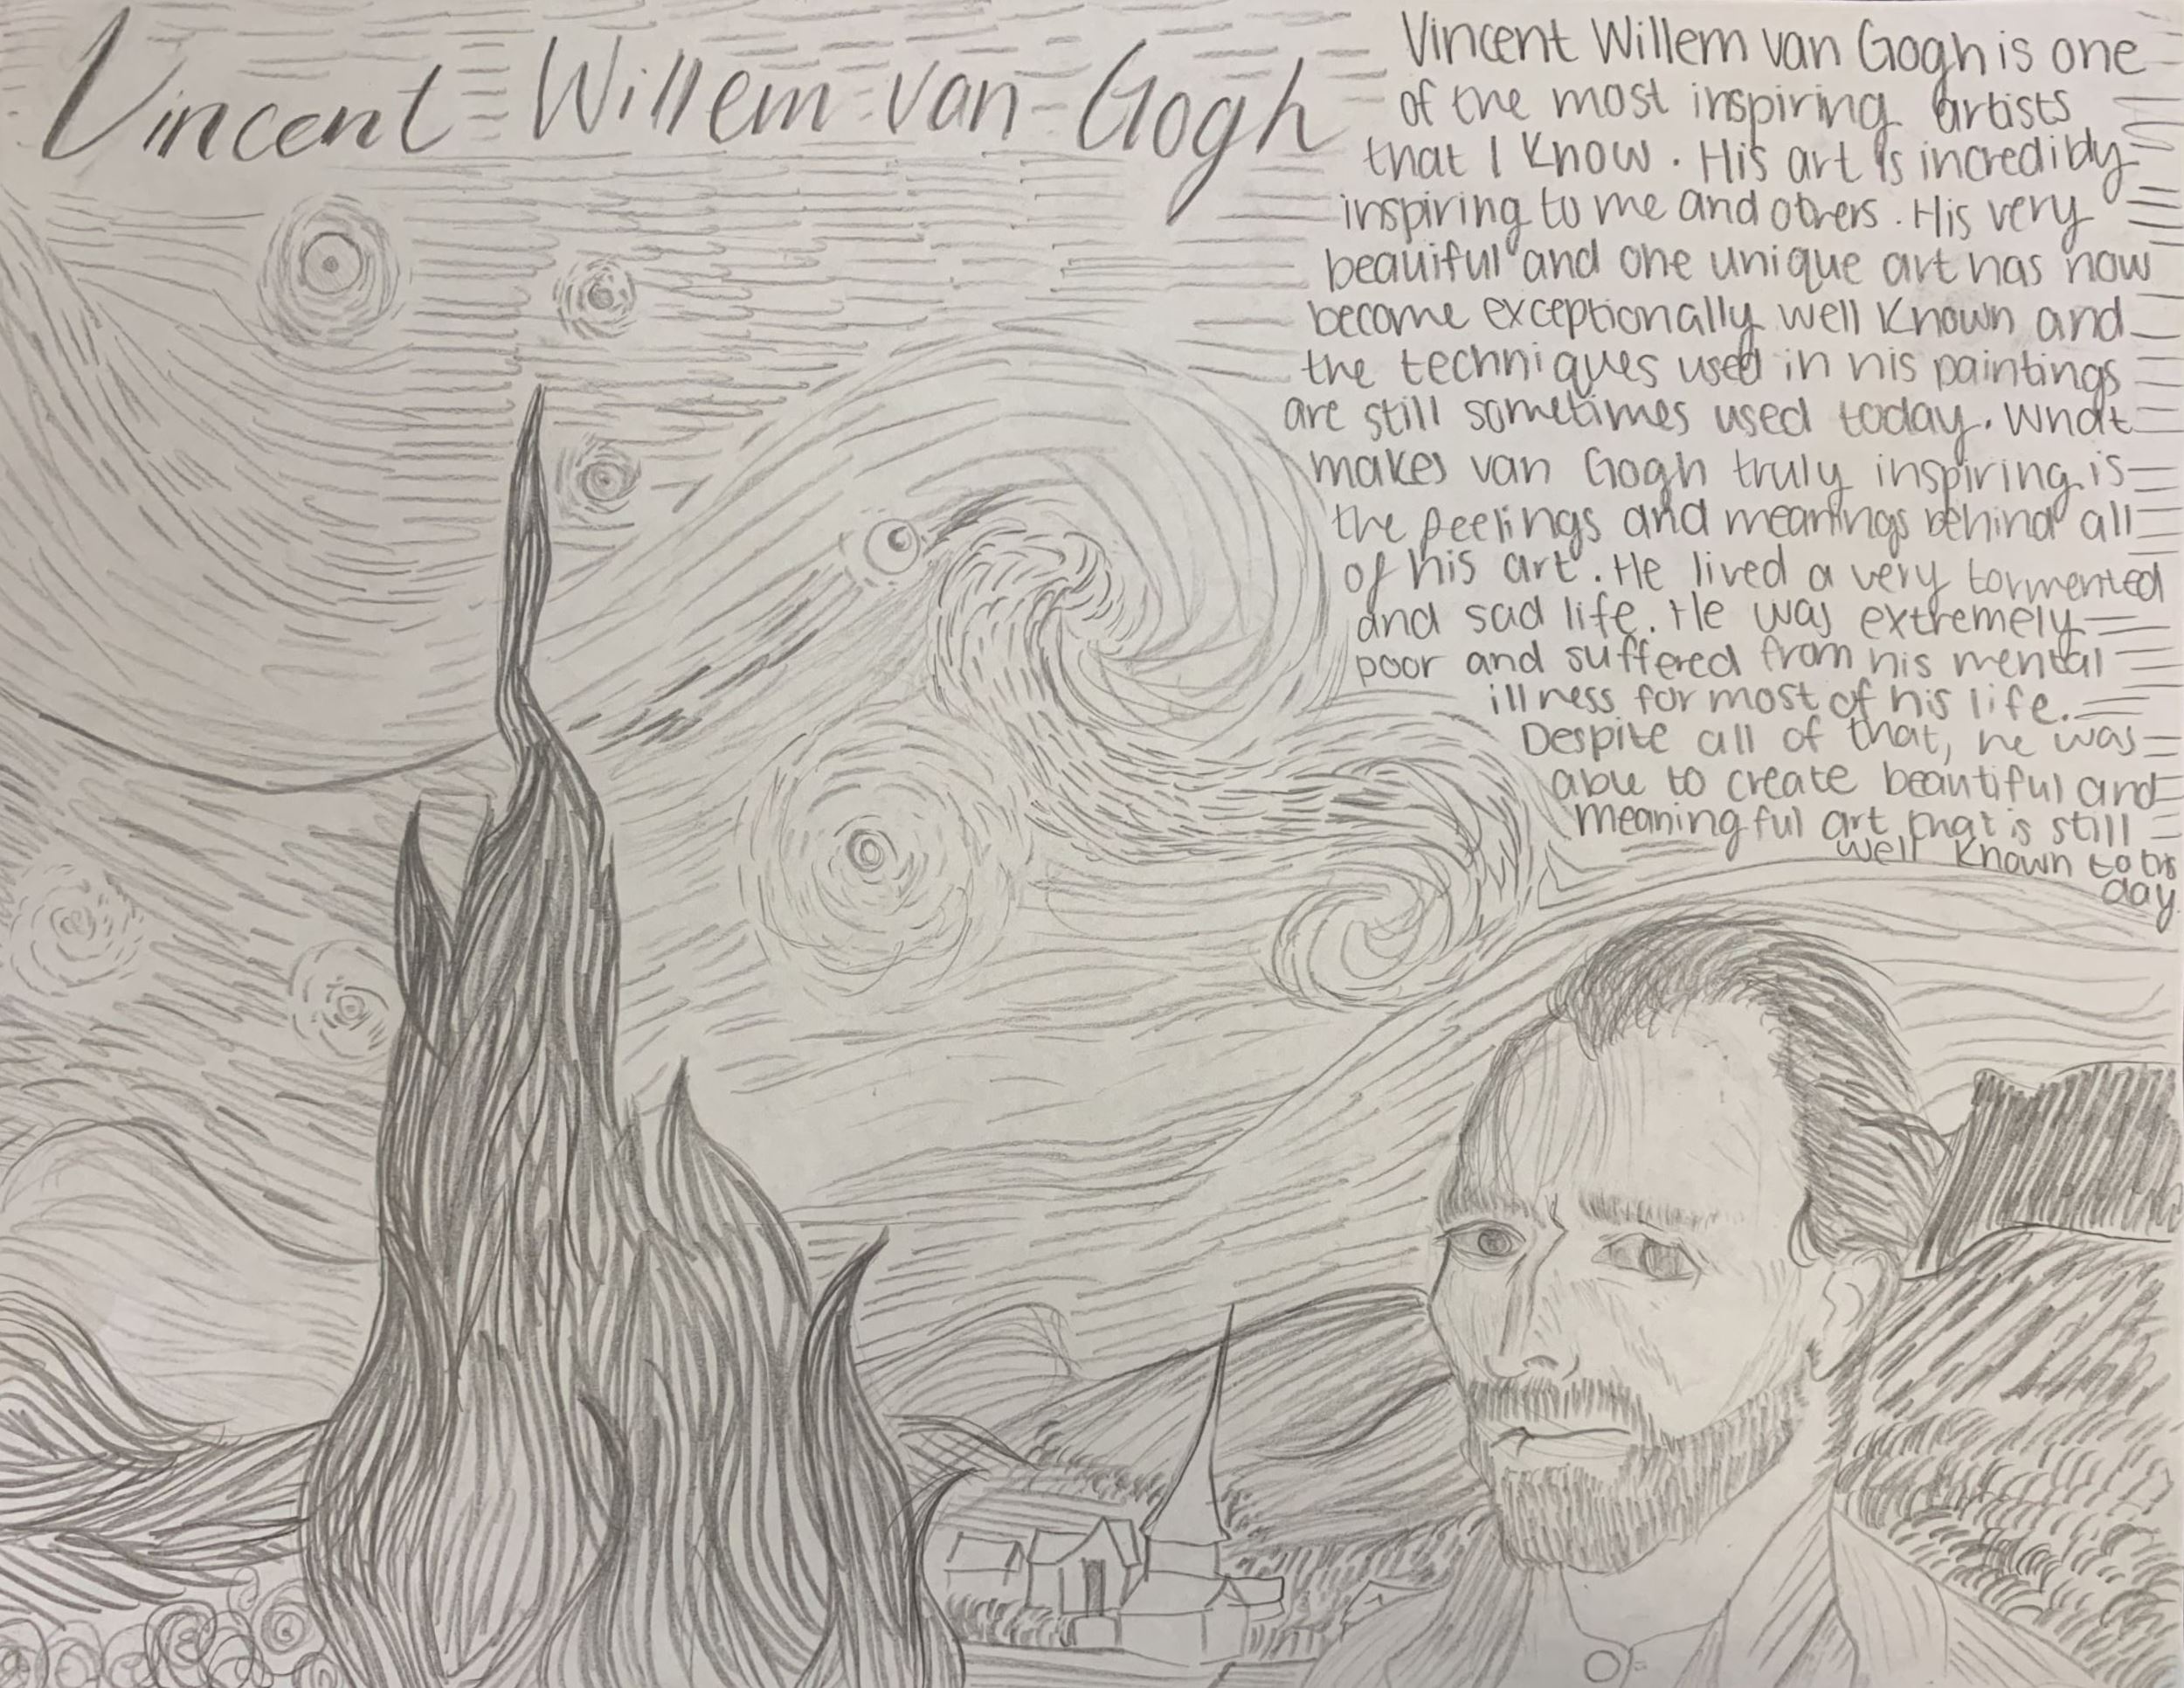 Vincent Willem van Gogh
Vincent Willem van Gogh is one
of the most inspiring artists
that I know. His art is incredibly
inspiring to me and others. His very
beauiful and one unique art has now
become exceptionally well known and
the techniques used in his paintings
are still sometimes used today. What
makes van Gogh truly inspiring is
the feelings and meanings behind all
of his art. He lived a very tormented
and sad life. He was extremely
poor and suffered from his mental
illness for most of his life.
Despite all of that, he was
able to create beautiful and
meaningful art that is still
well known to
day